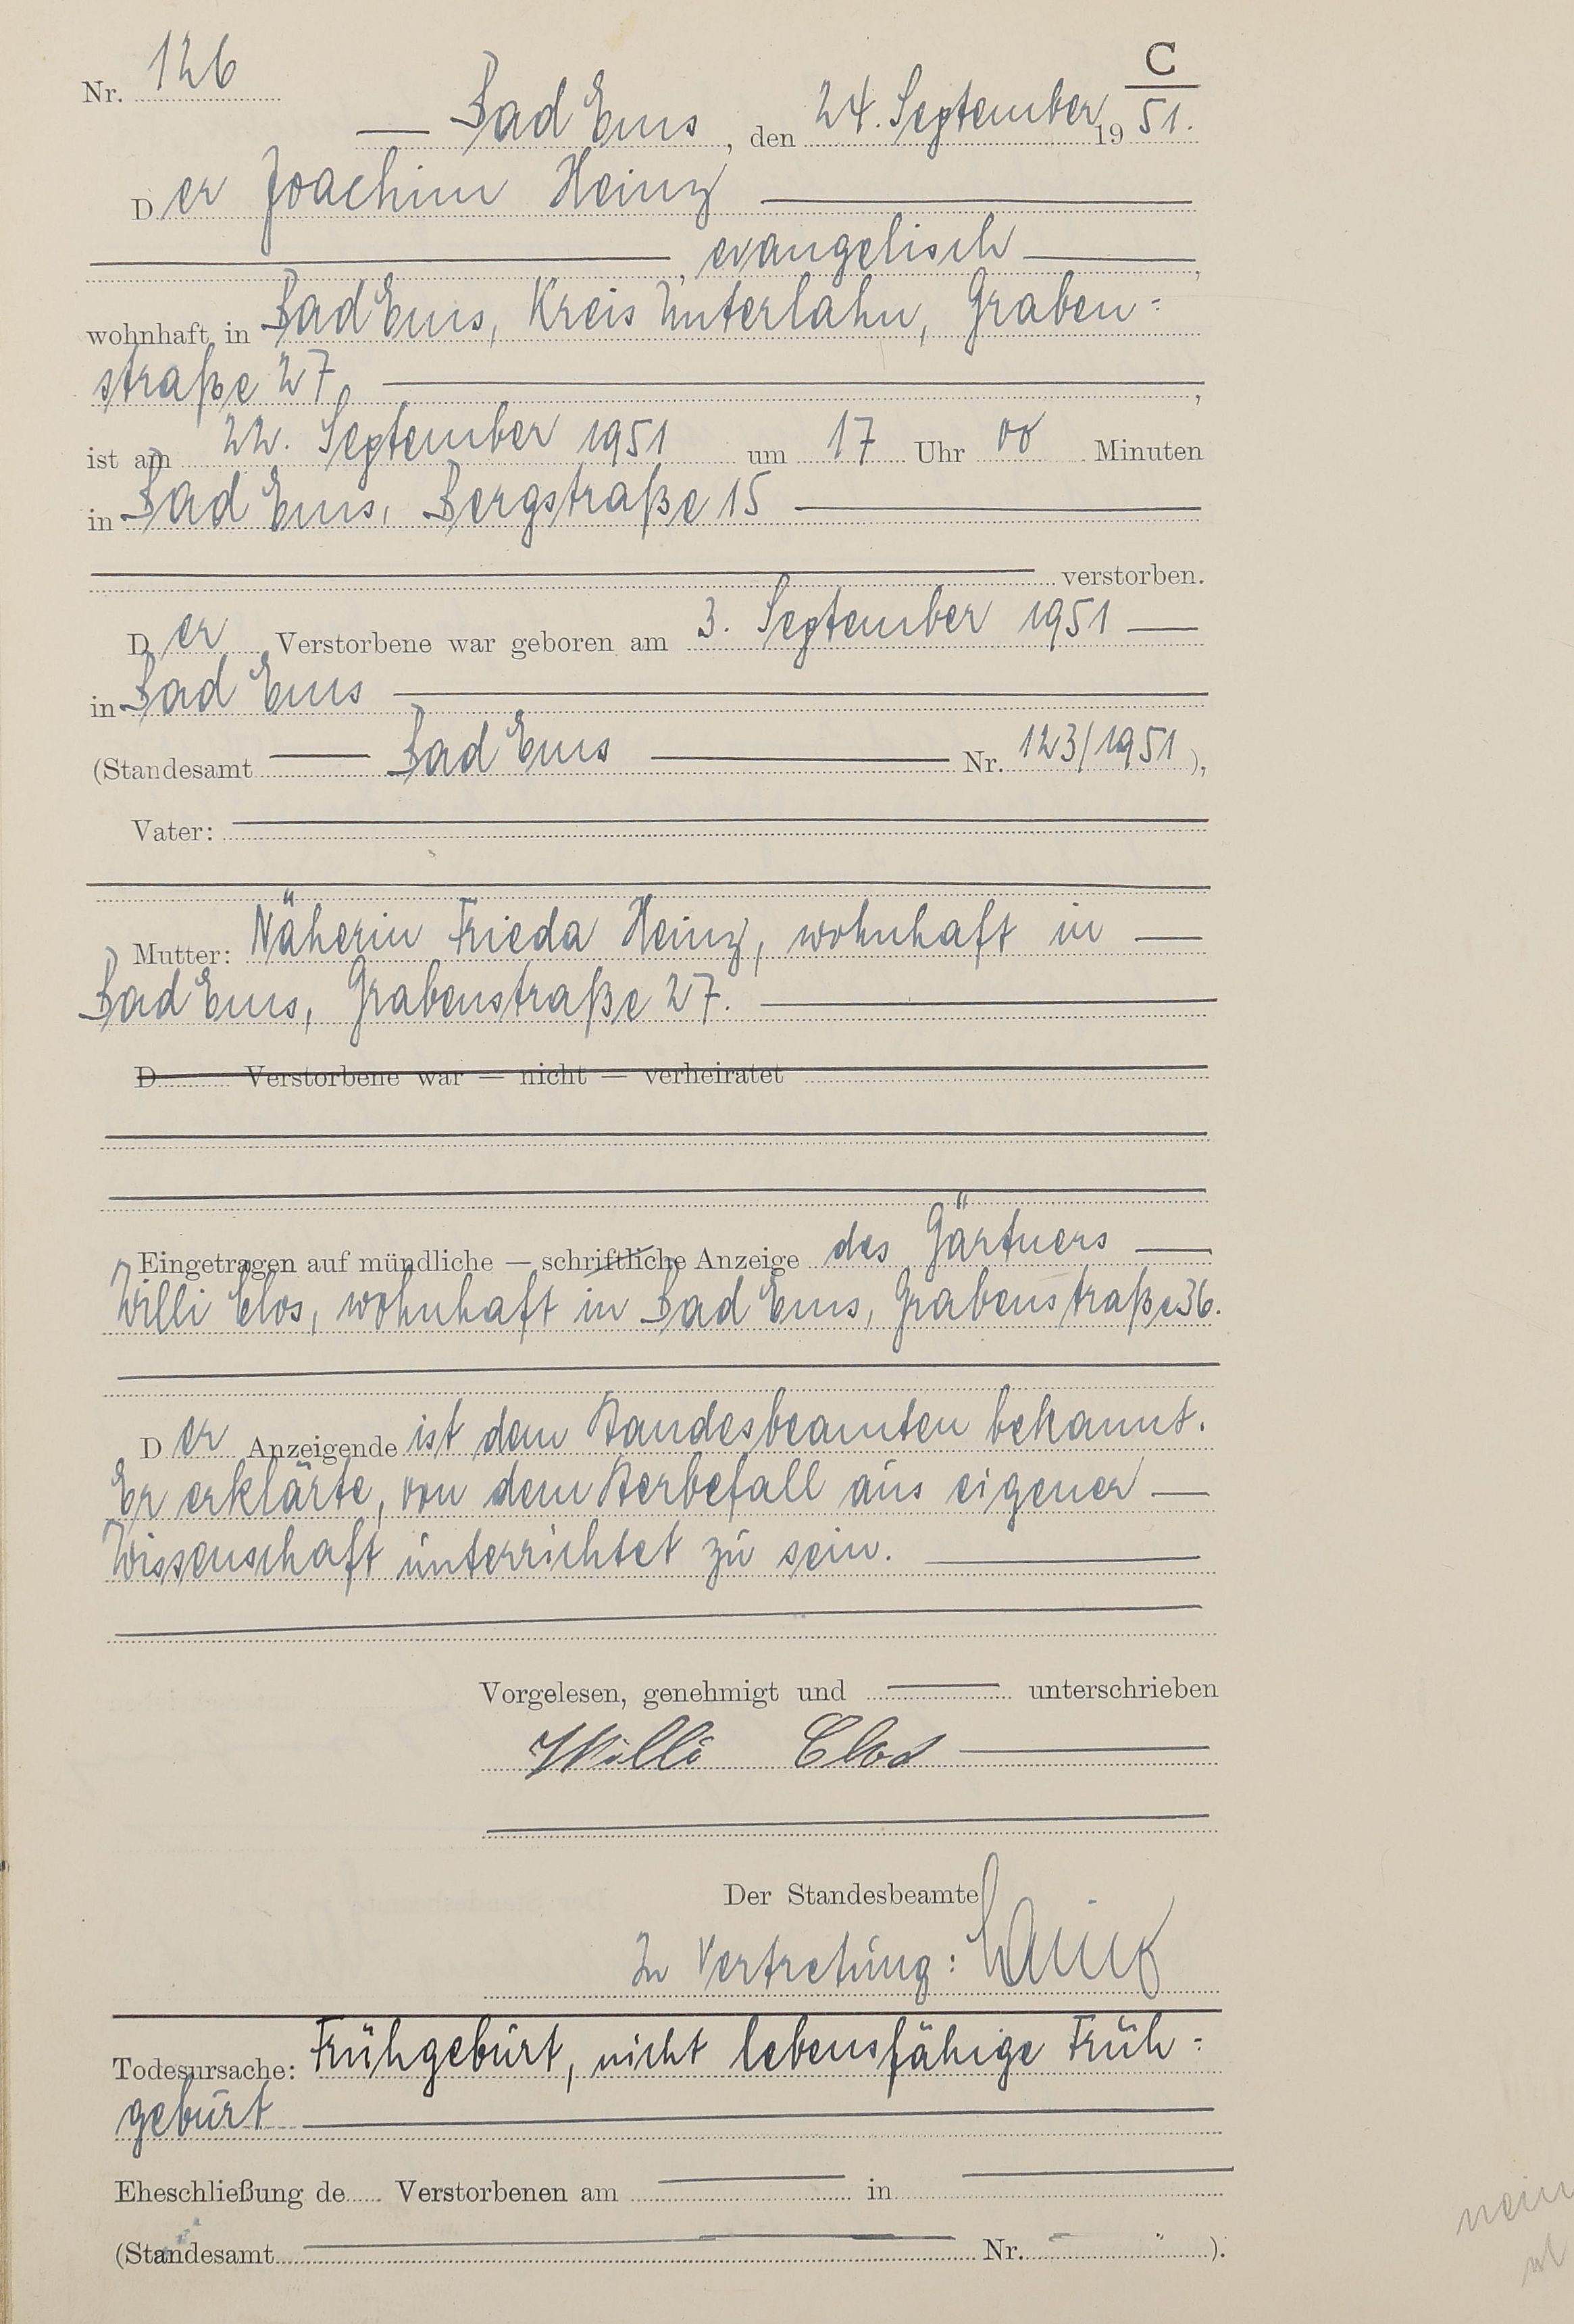 C
Nr. 126
Bad Ems, den 24. September 1951.
Der Joachim Heinz
, evangelisch,
wohnhaft in Bad Ems, Kreis Unterlahn, Graben=
straße 27,
ist am 22. September 1951 um 17 Uhr 00 Minuten
in Bad Ems, Bergstraße 15
verstorben.
Der Verstorbene war geboren am 3. September 1951
in Bad Ems
(Standesamt Bad Ems Nr. 123/1951),
Vater:
Mutter: Näherin Frieda Heinz, wohnhaft in
Bad Ems, Grabenstraße 27.
D Verstorbene war — nicht — verheiratet
Eingetragen auf mündliche — schriftliche Anzeige des Gärtners
Willi Clos, wohnhaft in Bad Ems, Grabenstraße 36.
Der Anzeigende ist dem Standesbeamten bekannt.
Er erklärte, von dem Sterbefall aus eigener
Wissenschaft unterrichtet zu sein.
Vorgelesen, genehmigt und unterschrieben
Willi Clos
Der Standesbeamte
In Vertretung:
Todesursache: Frühgeburt, nicht lebensfähige Früh=
geburt
Eheschließung de Verstorbenen am in
(Standesamt Nr. ).
nein